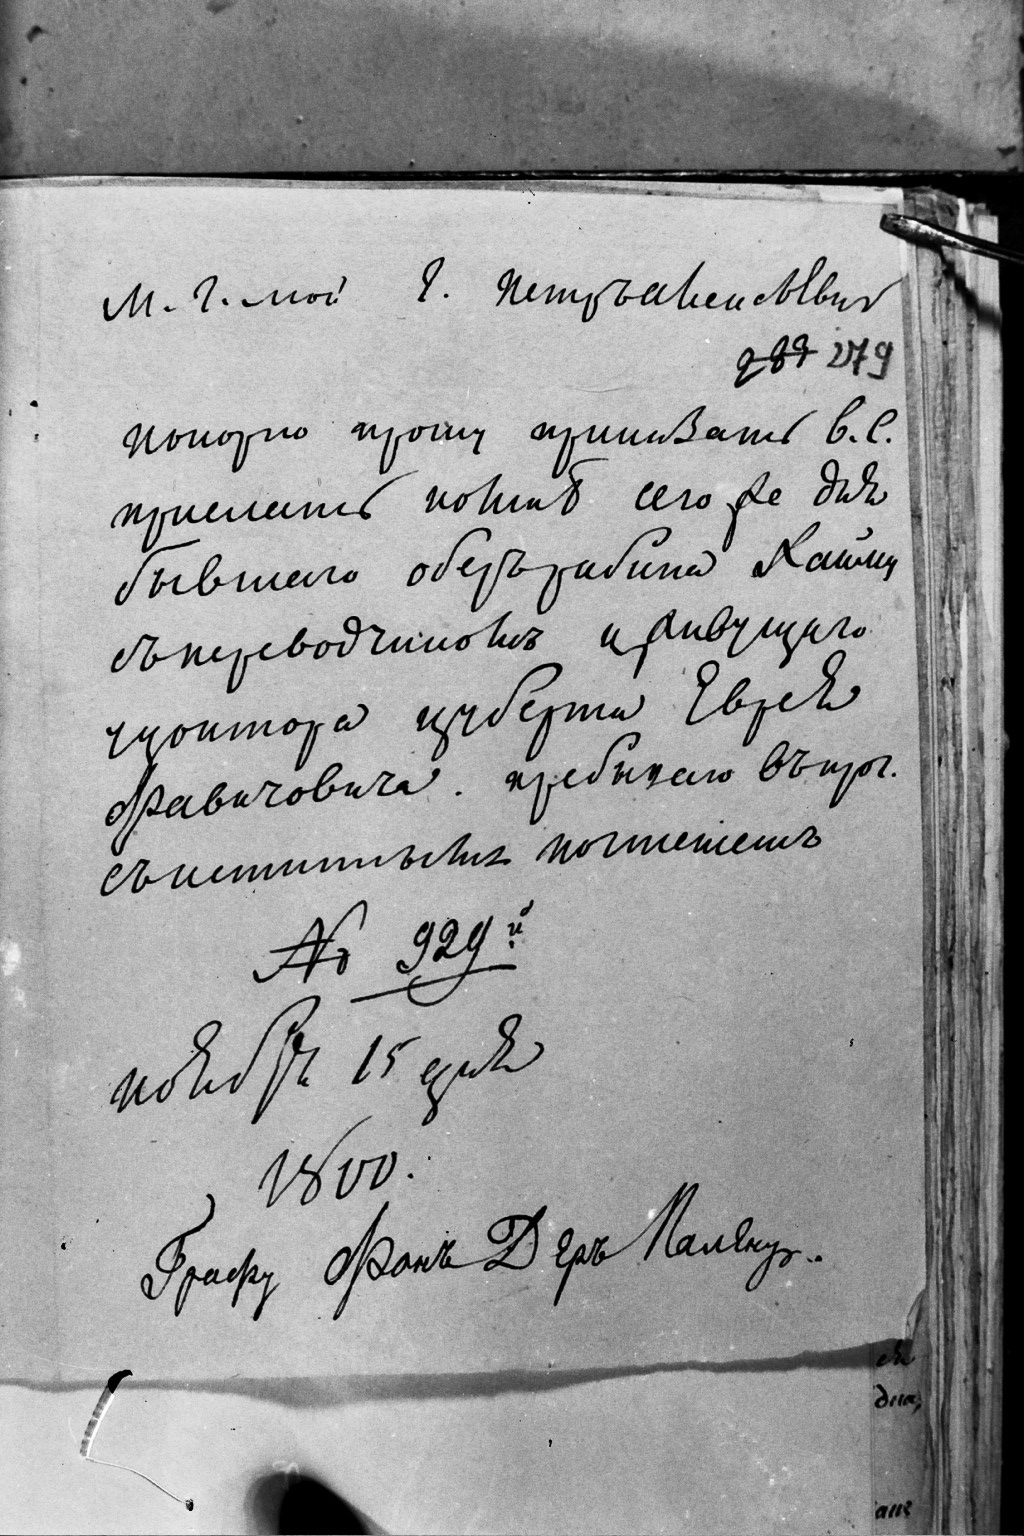 М. Г. мой Г. Петръ Алексѣевичъ
279
покорно прошу приказать в. С.
прислать ко мнѣ сего же дня
бывшего оберърабина Хайму
съ переводчикомъ и живущаго
у доктора Губерта Еврея
Фавичовича. пребываю въпроч.
съ истиннымъ почтениемъ
№ 929й
ноября 15 дня
1800.
Графу Фонъ Деръ Палену.